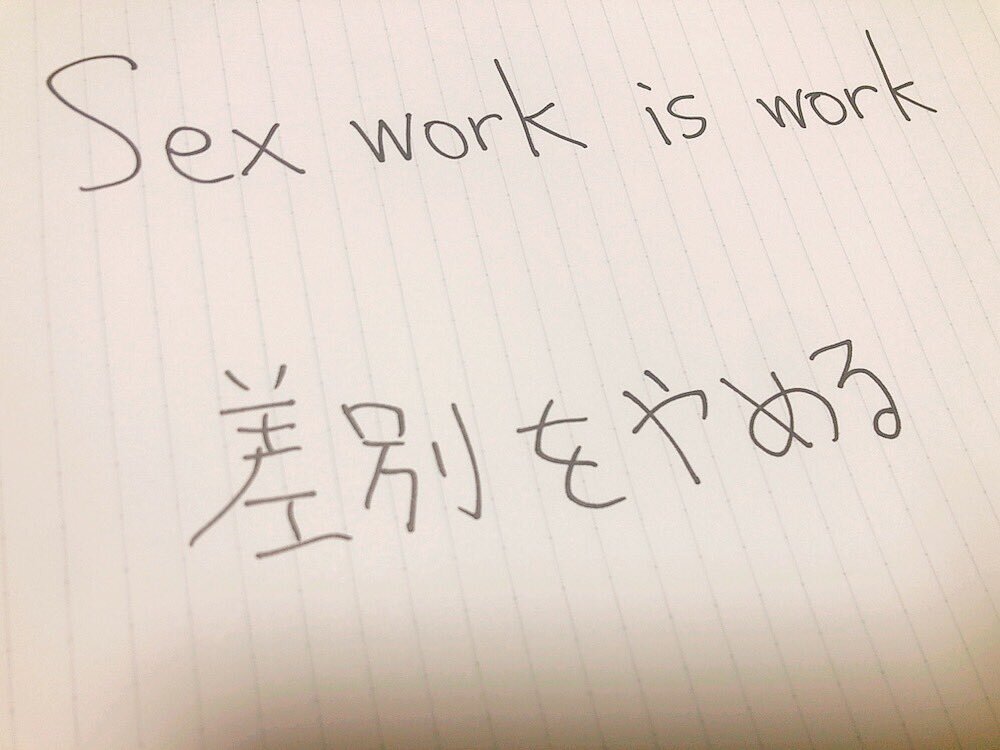 Sex work is work
差別をやめる